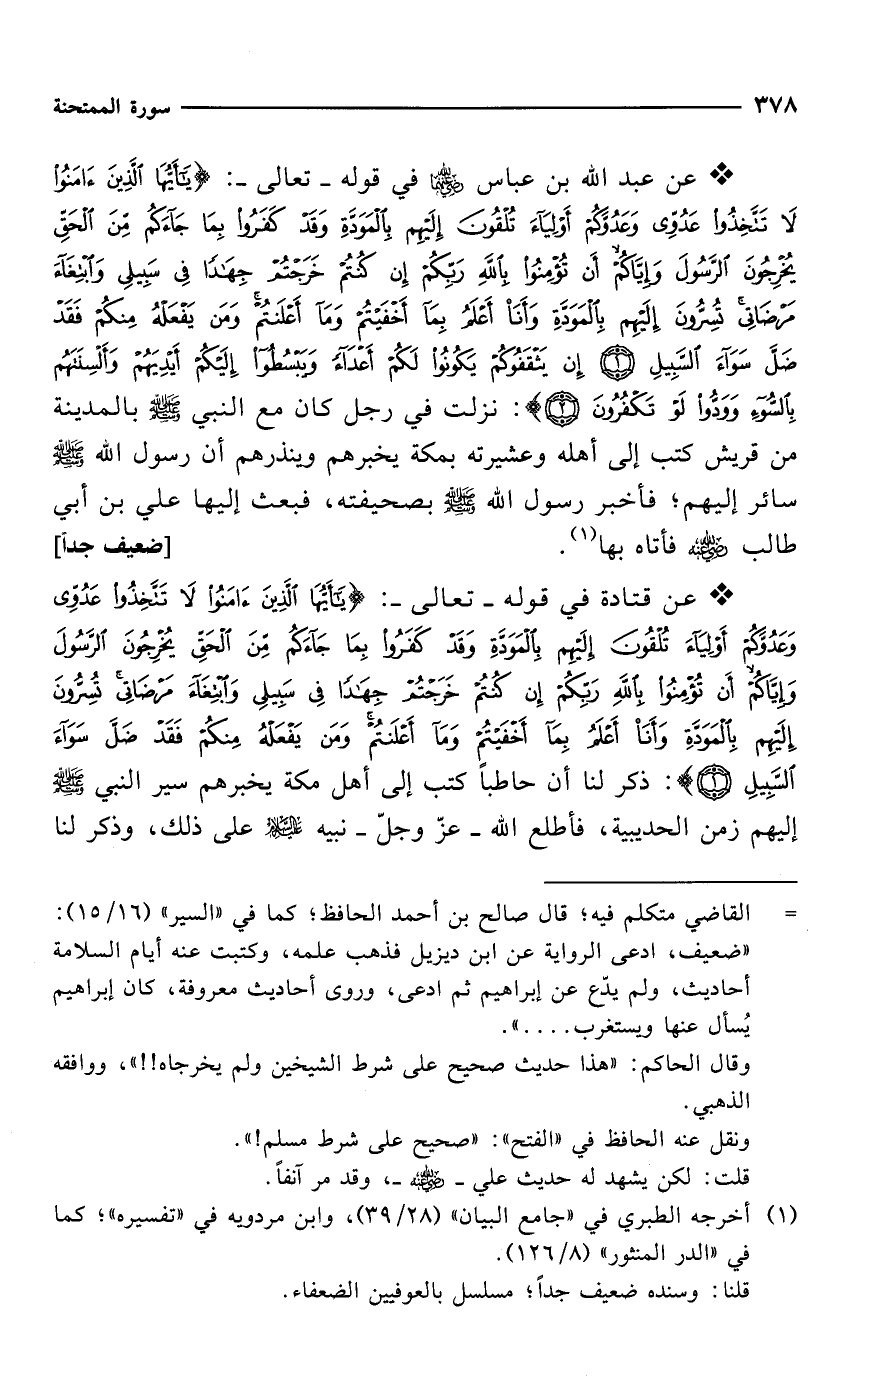 ٣٧٨ سورة الممتحنة
❖ عن عبد الله بن عباس رضي الله عنهما في قوله ـ تعالى ـ: ﴿يَٰٓأَيُّهَا ٱلَّذِينَ ءَامَنُوا۟
لَا تَتَّخِذُوا۟ عَدُوِّى وَعَدُوَّكُمْ أَوْلِيَآءَ تُلْقُونَ إِلَيْهِم بِٱلْمَوَدَّةِ وَقَدْ كَفَرُوا۟ بِمَا جَآءَكُم مِّنَ ٱلْحَقِّ
يُخْرِجُونَ ٱلرَّسُولَ وَإِيَّاكُمْ ۙ أَن تُؤْمِنُوا۟ بِٱللَّهِ رَبِّكُمْ إِن كُنتُمْ خَرَجْتُمْ جِهَٰدًا فِى سَبِيلِى وَٱبْتِغَآءَ
مَرْضَاتِى ۚ تُسِرُّونَ إِلَيْهِم بِٱلْمَوَدَّةِ وَأَنَا۠ أَعْلَمُ بِمَآ أَخْفَيْتُمْ وَمَآ أَعْلَنتُمْ ۚ وَمَن يَفْعَلْهُ مِنكُمْ فَقَدْ
ضَلَّ سَوَآءَ ٱلسَّبِيلِ ١ إِن يَثْقَفُوكُمْ يَكُونُوا۟ لَكُمْ أَعْدَآءً وَيَبْسُطُوٓا۟ إِلَيْكُمْ أَيْدِيَهُمْ وَأَلْسِنَتَهُم
بِٱلسُّوٓءِ وَوَدُّوا۟ لَوْ تَكْفُرُونَ ٢﴾: نزلت في رجل كان مع النبي ﷺ بالمدينة
من قريش كتب إلى أهله وعشيرته بمكة يخبرهم وينذرهم أن رسول الله ﷺ
سائر إليهم؛ فأخبر رسول الله ﷺ بصحيفته، فبعث إليها علي بن أبي
طالب رضي الله عنه فأتاه بها(١). [ضعيف جداً]
❖ عن قتادة في قوله ـ تعالى ـ: ﴿يَٰٓأَيُّهَا ٱلَّذِينَ ءَامَنُوا۟ لَا تَتَّخِذُوا۟ عَدُوِّى
وَعَدُوَّكُمْ أَوْلِيَآءَ تُلْقُونَ إِلَيْهِم بِٱلْمَوَدَّةِ وَقَدْ كَفَرُوا۟ بِمَا جَآءَكُم مِّنَ ٱلْحَقِّ يُخْرِجُونَ ٱلرَّسُولَ
وَإِيَّاكُمْ ۙ أَن تُؤْمِنُوا۟ بِٱللَّهِ رَبِّكُمْ إِن كُنتُمْ خَرَجْتُمْ جِهَٰدًا فِى سَبِيلِى وَٱبْتِغَآءَ مَرْضَاتِى ۚ تُسِرُّونَ
إِلَيْهِم بِٱلْمَوَدَّةِ وَأَنَا۠ أَعْلَمُ بِمَآ أَخْفَيْتُمْ وَمَآ أَعْلَنتُمْ ۚ وَمَن يَفْعَلْهُ مِنكُمْ فَقَدْ ضَلَّ سَوَآءَ
ٱلسَّبِيلِ ١﴾: ذكر لنا أن حاطباً كتب إلى أهل مكة يخبرهم سير النبي ﷺ
إليهم زمن الحديبية، فأطلع الله ـ عزّ وجلّ ـ نبيه عليه السلام على ذلك، وذكر لنا
= القاضي متكلم فيه؛ قال صالح بن أحمد الحافظ؛ كما في «السير» (١٥/١٦):
«ضعيف، ادعى الرواية عن ابن ديزيل فذهب علمه، وكتبت عنه أيام السلامة
أحاديث، ولم يدّع عن إبراهيم ثم ادعى، وروى أحاديث معروفة، كان إبراهيم
يُسأل عنها ويستغرب....».
وقال الحاكم: «هذا حديث صحيح على شرط الشيخين ولم يخرجاه!!»، ووافقه
الذهبي.
ونقل عنه الحافظ في «الفتح»: «صحيح على شرط مسلم!».
قلت: لكن يشهد له حديث علي ـ رضي الله عنه ـ، وقد مر آنفاً.
(١) أخرجه الطبري في «جامع البيان» (٣٩/٢٨)، وابن مردويه في «تفسيره»؛ كما
في «الدر المنثور» (١٢٦/٨).
قلنا: وسنده ضعيف جداً؛ مسلسل بالعوفيين الضعفاء.